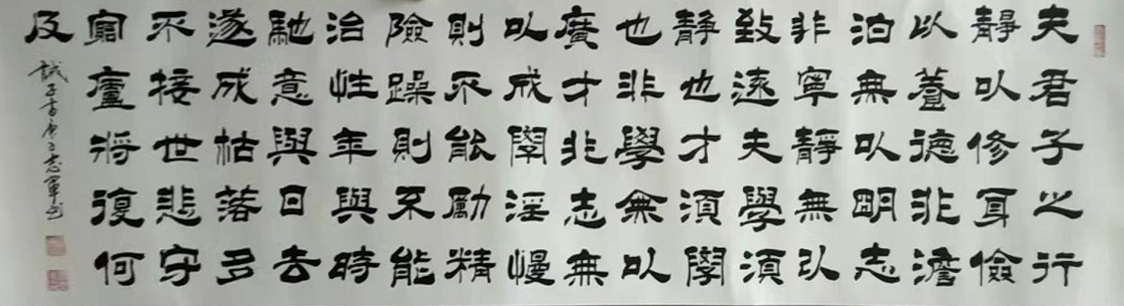 夫君子之行
靜以修身儉
以養德非澹
泊無以明志
非寧靜無以
致遠夫學須
靜也才須學
也非學無以
廣才非志無
以成學淫慢
則不能勵精
險躁則不能
治性年與時
馳意與日去
遂成枯落多
不接世悲守
窮廬將復何
及
誡子書庚子志軍書